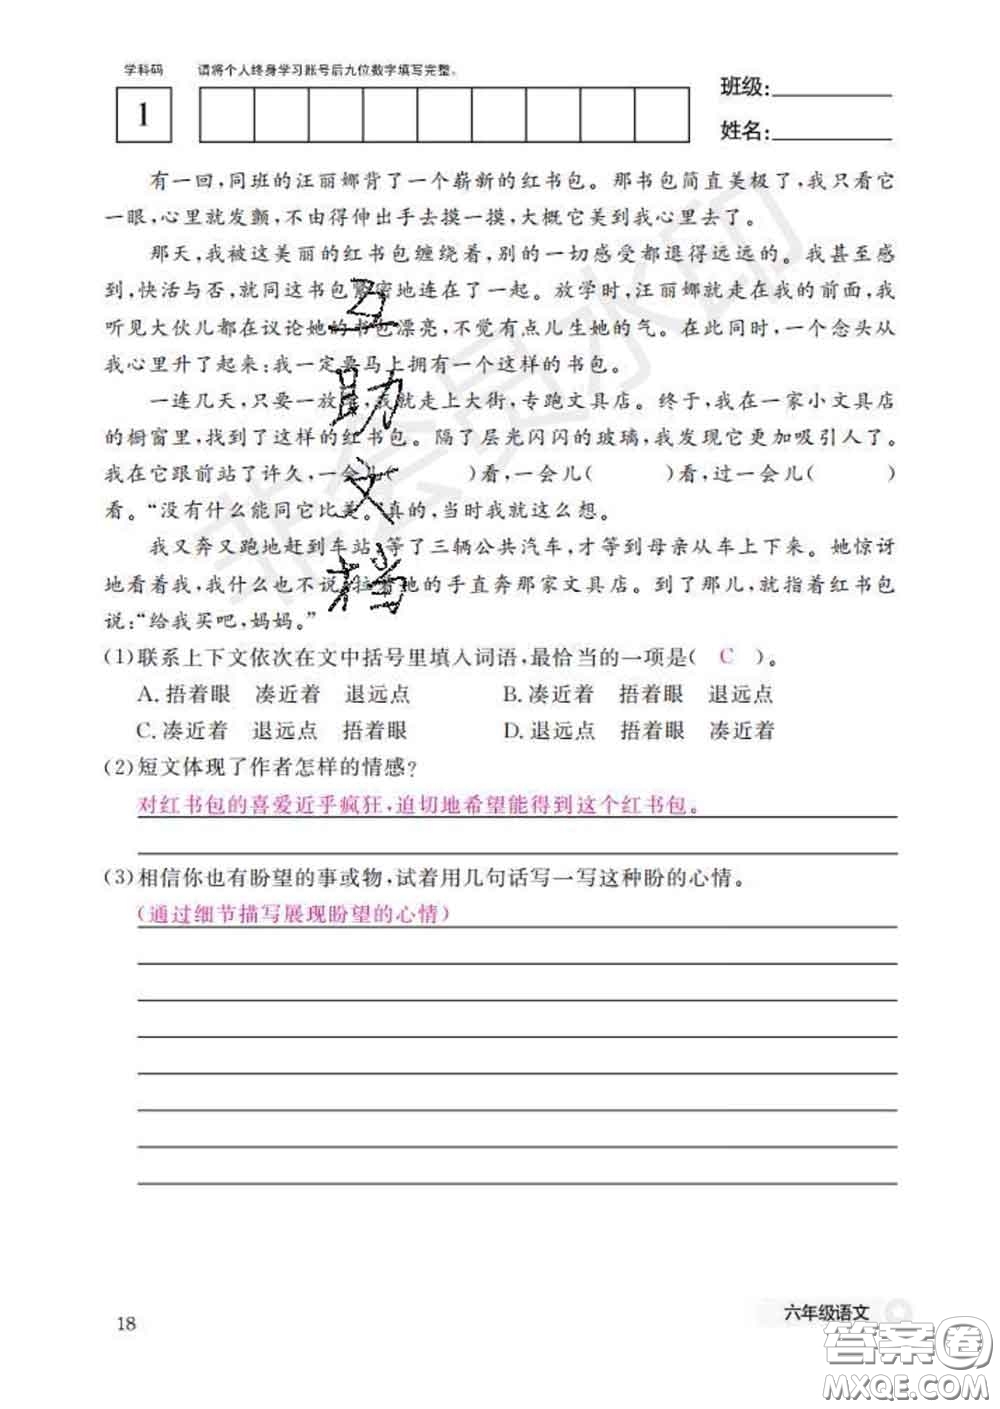 学科码　请将个人终身学习账号后九位数字填写完整。
1
班级:
姓名:
有一回,同班的汪丽娜背了一个崭新的红书包。那书包简直美极了,我只看它
一眼,心里就发颤,不由得伸出手去摸一摸,大概它美到我心里去了。
那天,我被这美丽的红书包缠绕着,别的一切感受都退得远远的。我甚至感
到,快活与否,就同这书包紧密地连在了一起。放学时,汪丽娜就走在我的前面,我
听见大伙儿都在议论她的书包漂亮,不觉有点儿生她的气。在此同时,一个念头从
我心里升了起来:我一定要马上拥有一个这样的书包。
一连几天,只要一放学,我就走上大街,专跑文具店。终于,我在一家小文具店
的橱窗里,找到了这样的红书包。隔了层光闪闪的玻璃,我发现它更加吸引人了。
我在它跟前站了许久,一会儿(　　)看,一会儿(　　)看,过一会儿(　　)
看。“没有什么能同它比美。”真的,当时我就这么想。
我又奔又跑地赶到车站,等了三辆公共汽车,才等到母亲从车上下来。她惊讶
地看着我,我什么也不说,拉着她的手直奔那家文具店。到了那儿,就指着红书包
说:“给我买吧,妈妈。”
互助文档
非会员水印
(1)联系上下文依次在文中括号里填入词语,最恰当的一项是( C )。
A.捂着眼　凑近着　退远点　B.凑近着　捂着眼　退远点
C.凑近着　退远点　捂着眼　D.退远点　捂着眼　凑近着
(2)短文体现了作者怎样的情感?
对红书包的喜爱近乎疯狂,迫切地希望能得到这个红书包。
(3)相信你也有盼望的事或物,试着用几句话写一写这种盼的心情。
(通过细节描写展现盼望的心情)
18
六年级语文
答案圈
MXQE.COM